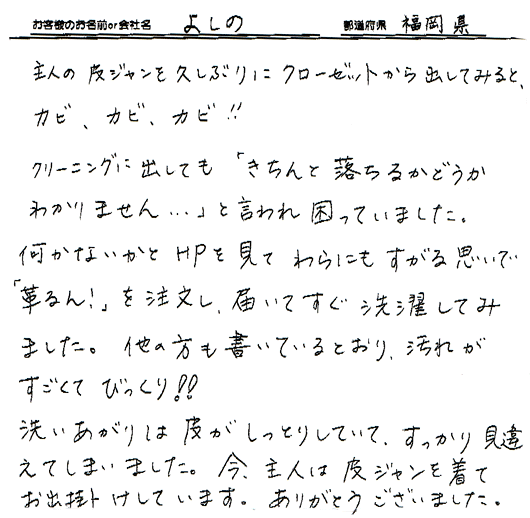 お客様のお名前or会社名 よしの 都道府県 福岡県
主人の皮ジャンを久しぶりにクローゼットから出してみると、
カビ、カビ、カビ!!
クリーニングに出しても「きちんと落ちるかどうか
わかりません…」と言われ困っていました。
何かないかとHPを見てわらにもすがる思いで
「革るん!」を注文し、届いてすぐ洗濯してみ
ました。他の方も書いているとおり、汚れが
すごくてびっくり!!
洗いあがりは皮がしっとりしていて、すっかり見違
えてしまいました。今、主人は皮ジャンを着て
お出掛けしています。ありがとうございました。